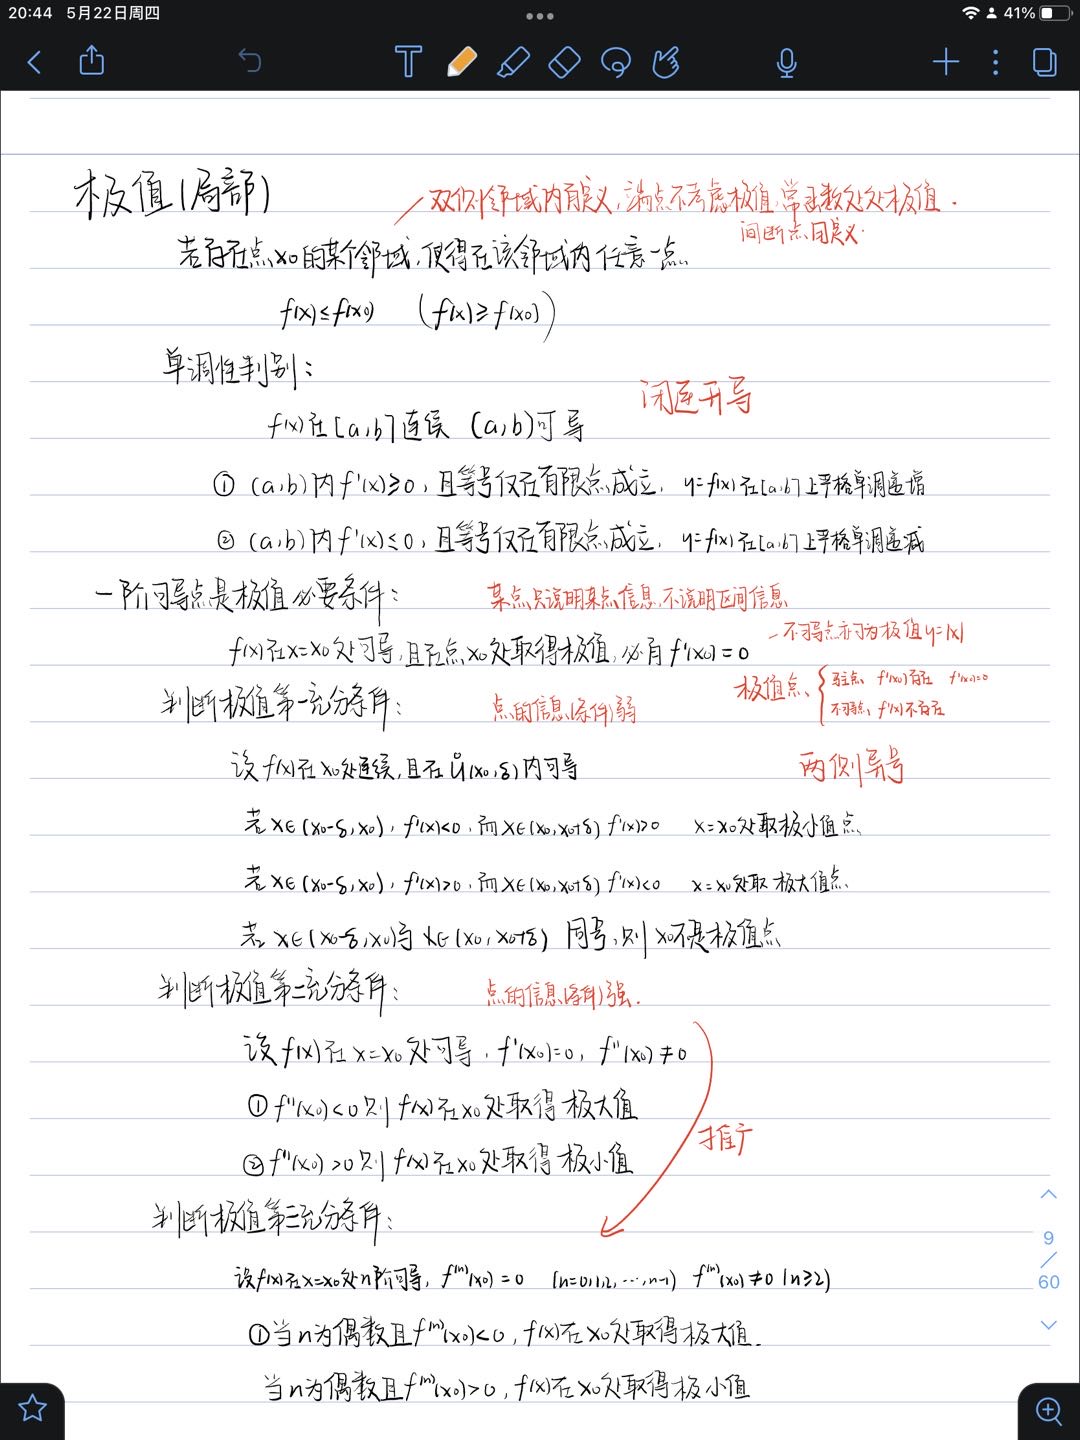 20:44 5月22日周四
41%
极值(局部)
双侧邻域内有定义,端点不考虑极值,常函数处处极值.
间断点有定义.
若存在点x₀的某个邻域,使得在该邻域内任意一点
f(x)≤f(x₀) (f(x)≥f(x₀))
单调性判别:
闭连开导
f(x)在[a,b]连续 (a,b)可导
① (a,b)内f'(x)≥0,且等号仅在有限点成立, y=f(x)在[a,b]上严格单调递增
② (a,b)内f'(x)≤0,且等号仅在有限点成立, y=f(x)在[a,b]上严格单调递减
一阶可导点是极值必要条件:
某点只说明某点信息,不说明区间信息
-不可导点亦可为极值 y=|x|
f(x)在x=x₀处可导,且在点x₀处取得极值,必有f'(x₀)=0
极值点 { 驻点 f'(x₀)存在 f'(x₀)=0
不可导点 f'(x)不存在
判断极值第一充分条件:
点的信息(条件)弱
设f(x)在x₀处连续,且在Ů(x₀,δ)内可导
两侧异号
若x∈(x₀-δ,x₀),f'(x)<0,而x∈(x₀,x₀+δ) f'(x)>0 x=x₀处取极小值点
若x∈(x₀-δ,x₀),f'(x)>0,而x∈(x₀,x₀+δ) f'(x)<0 x=x₀处取极大值点
若x∈(x₀-δ,x₀)与x∈(x₀,x₀+δ) 同号,则x₀不是极值点
判断极值第二充分条件:
点的信息(条件)强.
设f(x)在x=x₀处可导,f'(x₀)=0, f''(x₀)≠0
①f''(x₀)<0则f(x)在x₀处取得极大值
推广
②f''(x₀)>0则f(x)在x₀处取得极小值
判断极值第三充分条件:
设f(x)在x=x₀处n阶可导, f⁽ⁿ⁾(x₀)=0 (n=0,1,2,…,n-1) f⁽ⁿ⁾(x₀)≠0 (n≥2)
①当n为偶数且f⁽ⁿ⁾(x₀)<0,f(x)在x₀处取得极大值.
当n为偶数且f⁽ⁿ⁾(x₀)>0,f(x)在x₀处取得极小值
9
/
60